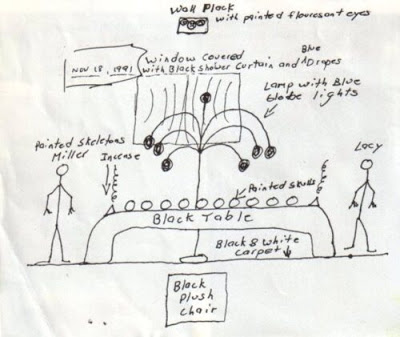 Wall Plack
with painted flouresant eyes
Nov 18, 1991
Window Covered
with Black Shower Curtain and Blue Drapes
Lamp with Blue
Globe lights
Painted Skeletons
Miller
Incense
Lacy
Painted skulls
Black Table
Black & White
Carpet
Black
Plush
Chair